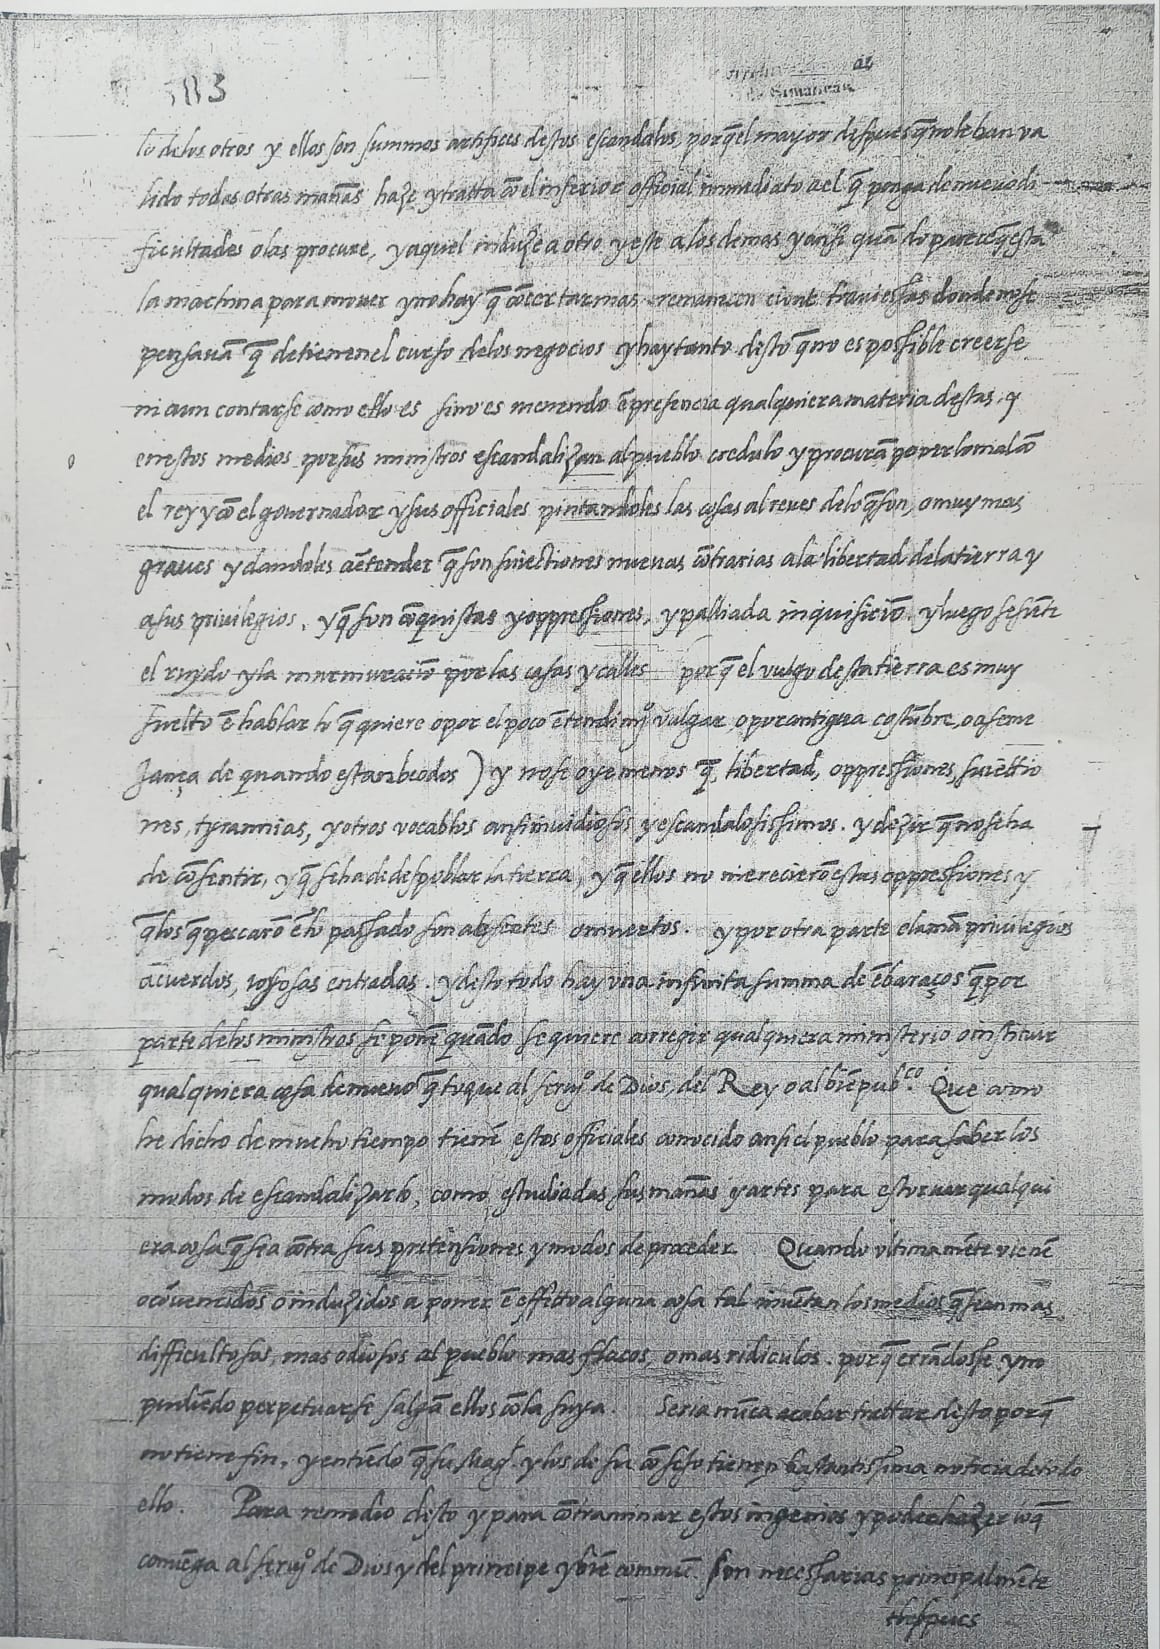 113
de Simancas
lo de los otros y ellos son summos artifices destos escandalos, porq̃ el mayor despues q̃ no le han va
lido todas otras mañas haze y tratta cõ el inferior official immediato a el q̃ ponga de nuevo di
ficultades o las procure, y aquel induze a otro y este a los demas y ansi quãdo parece q̃ esta
la machina para mover y no hay q̃ cõcertar mas renanecen cient traviessas donde no se
pensavã q̃ detienen el curso de los negocios y hay tanto desto q̃ no es possible creerse
ni aun contarse como ello es sino es meneando ẽ presencia qualquiera materia destas. y
en estos medios por sus ministros escandalizan al pueblo credulo y procurã poner lo mal cõ
el rey y cõ el governador y sus officiales pintandoles las cosas al reves de lo q̃ son, o muy mas
graves y dandoles a ẽtender q̃ son suiectiones nuevas cõtrarias a la libertad de la tierra y
a sus privilegios, y q̃ son cõquistas y oppressiones, y palliada inquisiciõ. y luego se siẽte
el ruydo y la murmuraciõ por las casas y calles porq̃ el vulgo desta tierra es muy
suelto ẽ hablar lo q̃ quiere o por el poco ẽtendimᵒ vulgar, o por antigua costũbre, o a seme
jança de quando estan beodos) y no se oye menos q̃, libertad, oppressiones, suiectio
nes, tyrannias, y otros vocablos ansi invidiosos y escandalosissimos. y dezir q̃ no se ha
de cõsentir, y q̃ se ha de despoblar la tierra, y q̃ ellos no merecierõ estas oppressiones y
q̃ los q̃ pescarõ ẽ lo passado son absentes o muertos. y por otra parte clamã privilegios
acuerdos, entradas. y desto todo hay una infinita summa de ẽbaraços q̃ por
parte de los ministros se ponẽ quãdo se quiere corregir qualquiera ministerio o instituir
qualquiera cosa de nuevo q̃ toque al servᵒ de Dios, del Rey o al biẽ pubᶜᵒ. Que como
he dicho de mucho tiempo tienẽ estos officiales conocido ansi el pueblo para saber los
modos de escandalizarlo, como estudiadas sus mañas y artes para estorvar qualqui
era cosa q̃ sea cõtra sus pretẽsiones y modos de proceder. Quando ultimamẽte vienẽ
o cõvencidos o induzidos a poner ẽ effetto alguna cosa tal invẽtan los medios q̃ sean mas
difficultosos, mas odiosos al pueblo mas flacos, o mas ridiculos. porq̃ errãdosse y no
pudiẽdo perpetuarse salgã ellos cõ la suya. Seria nũca acabar trattar desto porq̃
no tiene fin, y entiẽdo q̃ su Magᵗ. y los de su cõsejo tienen bastantissima noticia de todo
ello. Para remedio desto y para cõtraminar estos ingenios y poder hazer lo q̃
convẽga al servᵒ de Dios y del principe y biẽ commũ. son necessarias principalmẽte